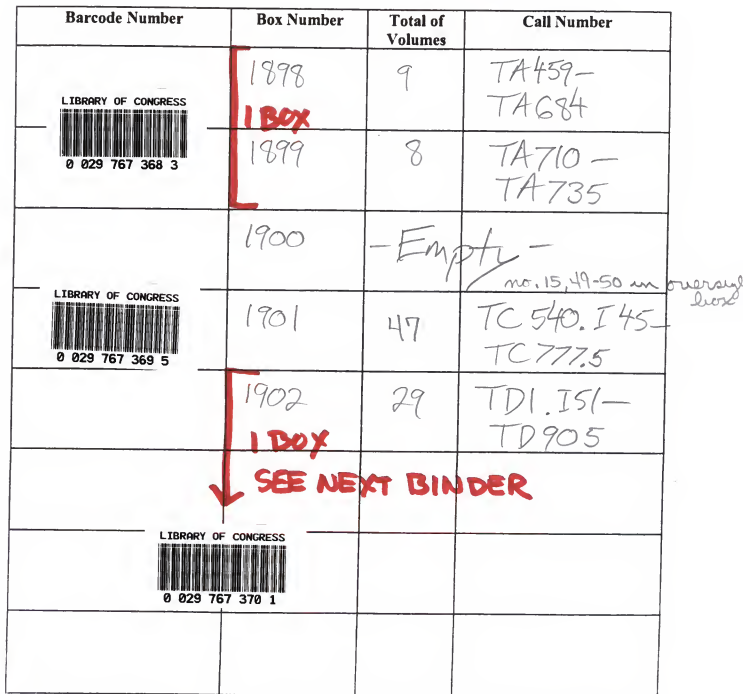 Barcode Number Box Number Total of Volumes Call Number
LIBRARY OF CONGRESS
0 029 767 368 3
1898 9 TA459-
TA684
1 BOX
1899 8 TA710-
TA735
1900 -Empty-
no. 15, 49-50 in oversize
box
LIBRARY OF CONGRESS
0 029 767 369 5
1901 47 TC 540.I45-
TC777.5
1902 29 TD1.I51-
TD905
1 BOX
SEE NEXT BINDER
LIBRARY OF CONGRESS
0 029 767 370 1